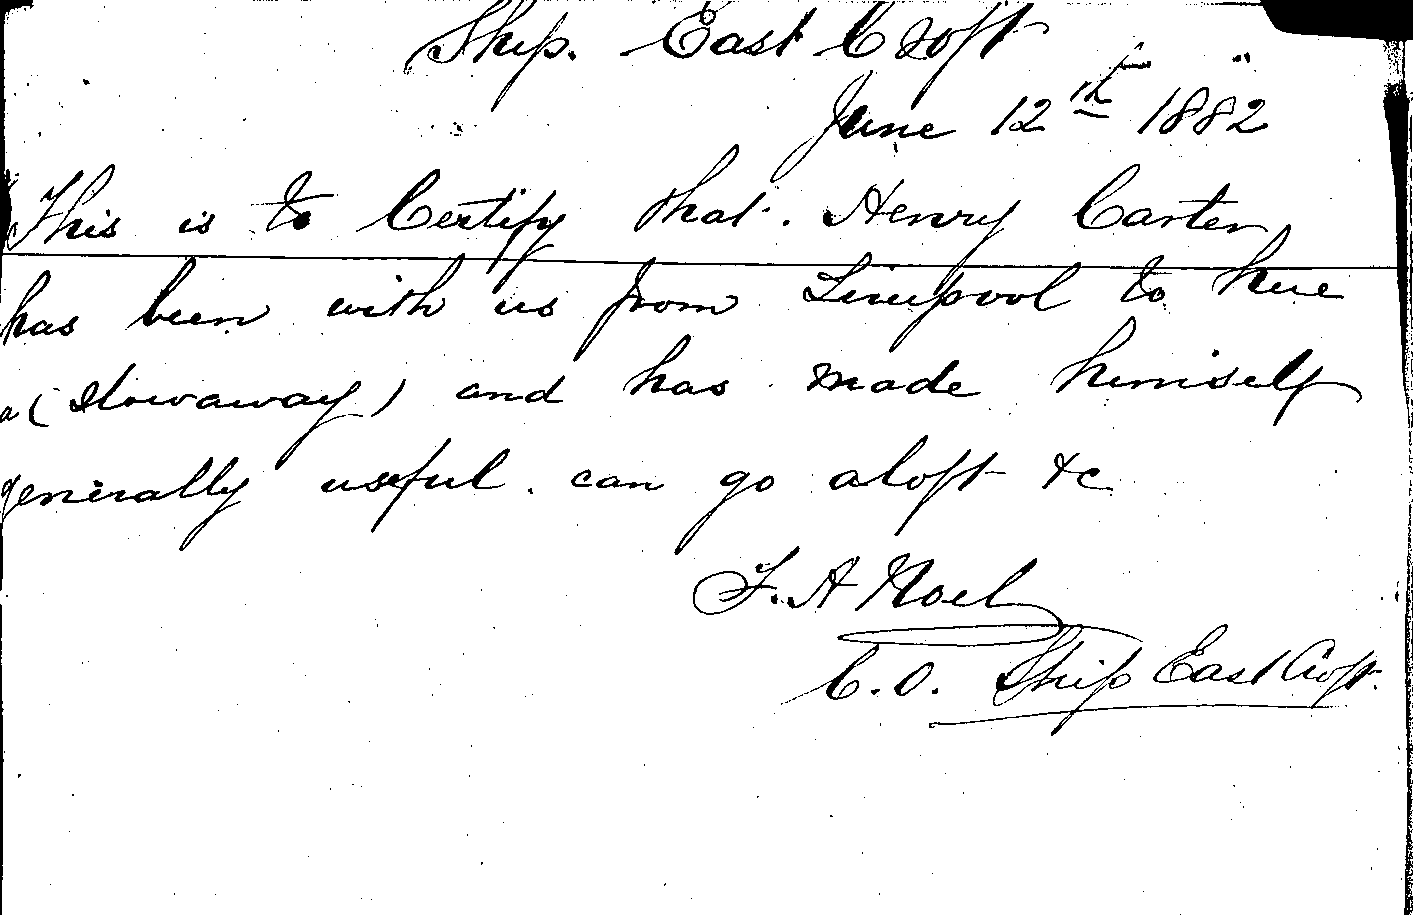 Ship. East Croft
June 12th 1882
This is to Certify that. Henry Carter
has been with us from Liverpool to here
a (Stowaway) and has made himself
generally useful. can go aloft &c
F. A Noel
C. O. Ship East Croft.